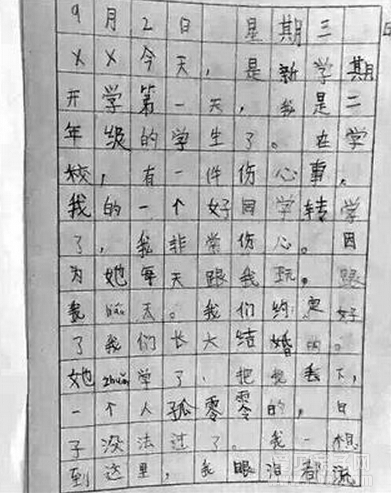 9月2日 星期三
××今天,是新学期
开学第一天,我是二
年级的学生了。在学
校,有一件伤心事,
我的一个好同学转学
了,我非常伤心。因
为她每天跟我玩。跟
我liáo天。我们约定好
了我们长大结婚的。
她zhuǎn学了,把我丢下,
一个人孤零零的,日
子没法过了。我一想
到这里,我眼泪都流